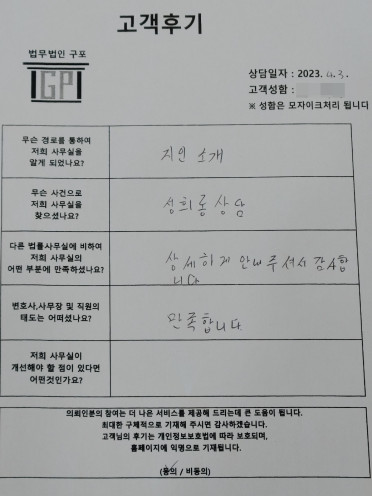 고객후기
법무법인 구포
GP
상담일자 : 2023. 4. 3.
고객성함 :
※ 성함은 모자이크처리 됩니다
무슨 경로를 통하여
저희 사무실을
알게 되었나요?
지인 소개
무슨 사건으로
저희 사무실을
찾으셨나요?
성희롱 상담
다른 법률사무실에 비하여
저희 사무실의
어떤 부분에 만족하셨나요?
상세하게 안내주셔서 감사합
니다
변호사,사무장 및 직원의
태도는 어떠셨나요?
만족합니다
저희 사무실이
개선해야 할 점이 있다면
어떤것인가요?
의뢰인분의 참여는 더 나은 서비스를 제공해 드리는데 큰 도움이 됩니다.
최대한 구체적으로 기재해 주시면 감사하겠습니다.
고객님의 후기는 개인정보보호법에 따라 보호되며,
홈페이지에 익명으로 기재됩니다.
(동의 / 비동의)